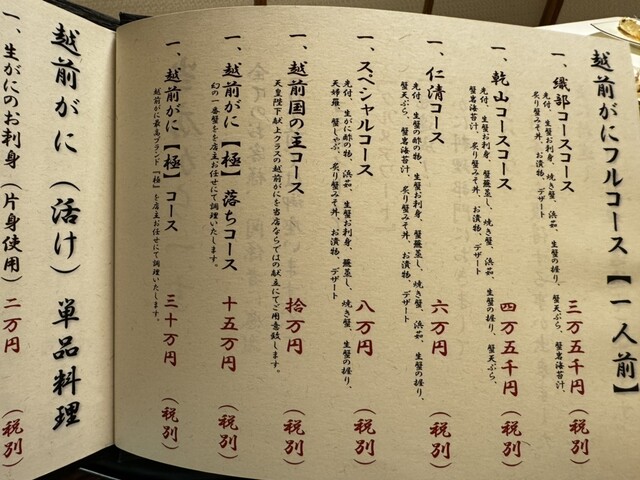 越前がにフルコース【一人前】
一、織部コースコース 三万五千円（税別）
先付、生蟹お刺身、焼き蟹、浜茹、生蟹の握り、蟹天ぷら、蟹岩海苔汁、
炙り蟹みそ丼、お漬物、デザート
一、乾山コースコース 四万五千円（税別）
先付、生蟹お刺身、蟹蕪蒸し、焼き蟹、浜茹、生蟹の握り、蟹天ぷら、
蟹岩海苔汁、炙り蟹みそ丼、お漬物、デザート
一、仁清コース 六万円（税別）
先付、生蟹の酢の物、生蟹お刺身、蟹蕪蒸し、焼き蟹、浜茹、生蟹の握り、
蟹天ぷら、蟹岩海苔汁、炙り蟹みそ丼、お漬物、デザート
一、スペシャルコース 八万円（税別）
先付、生がに酢の物、浜茹、生蟹お刺身、蟹蕪蒸し、焼き蟹、生蟹の握り、
天婦羅、蟹しゃぶ、炙り蟹みそ丼、お漬物、デザート
一、越前国の主コース 拾万円（税別）
天皇陛下献上クラスの越前がにを当店ならではの献立にてご用意致します。
一、越前がに【極】落ちコース 十五万円（税別）
幻の一番蟹をを店主お任せにて調理いたします。
一、越前がに【極】コース 三十万円（税別）
越前がに最高ブランド「極」を店主お任せにて調理いたします。
越前がに（活け）単品料理
一、生がにのお刺身（片身使用）二万円（税別）